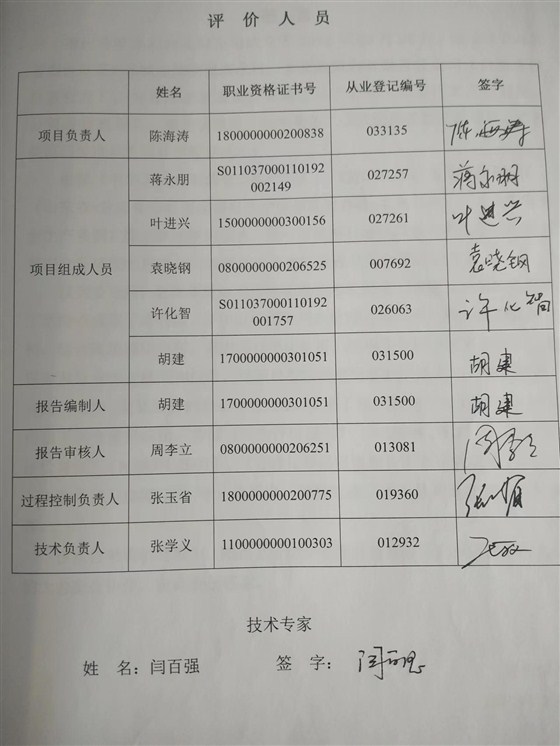 评 价 人 员
姓名 职业资格证书号 从业登记编号 签字
项目负责人 陈海涛 1800000000200838 033135 陈海涛
项目组成人员
蒋永朋 S011037000110192002149 027257 蒋永朋
叶进兴 1500000000300156 027261 叶进兴
袁晓钢 0800000000206525 007692 袁晓钢
许化智 S011037000110192001757 026063 许化智
胡建 1700000000301051 031500 胡建
报告编制人 胡建 1700000000301051 031500 胡建
报告审核人 周李立 0800000000206251 013081 周李立
过程控制负责人 张玉省 1800000000200775 019360
技术负责人 张学义 1100000000100303 012932
技术专家
姓 名：闫百强 签 字：